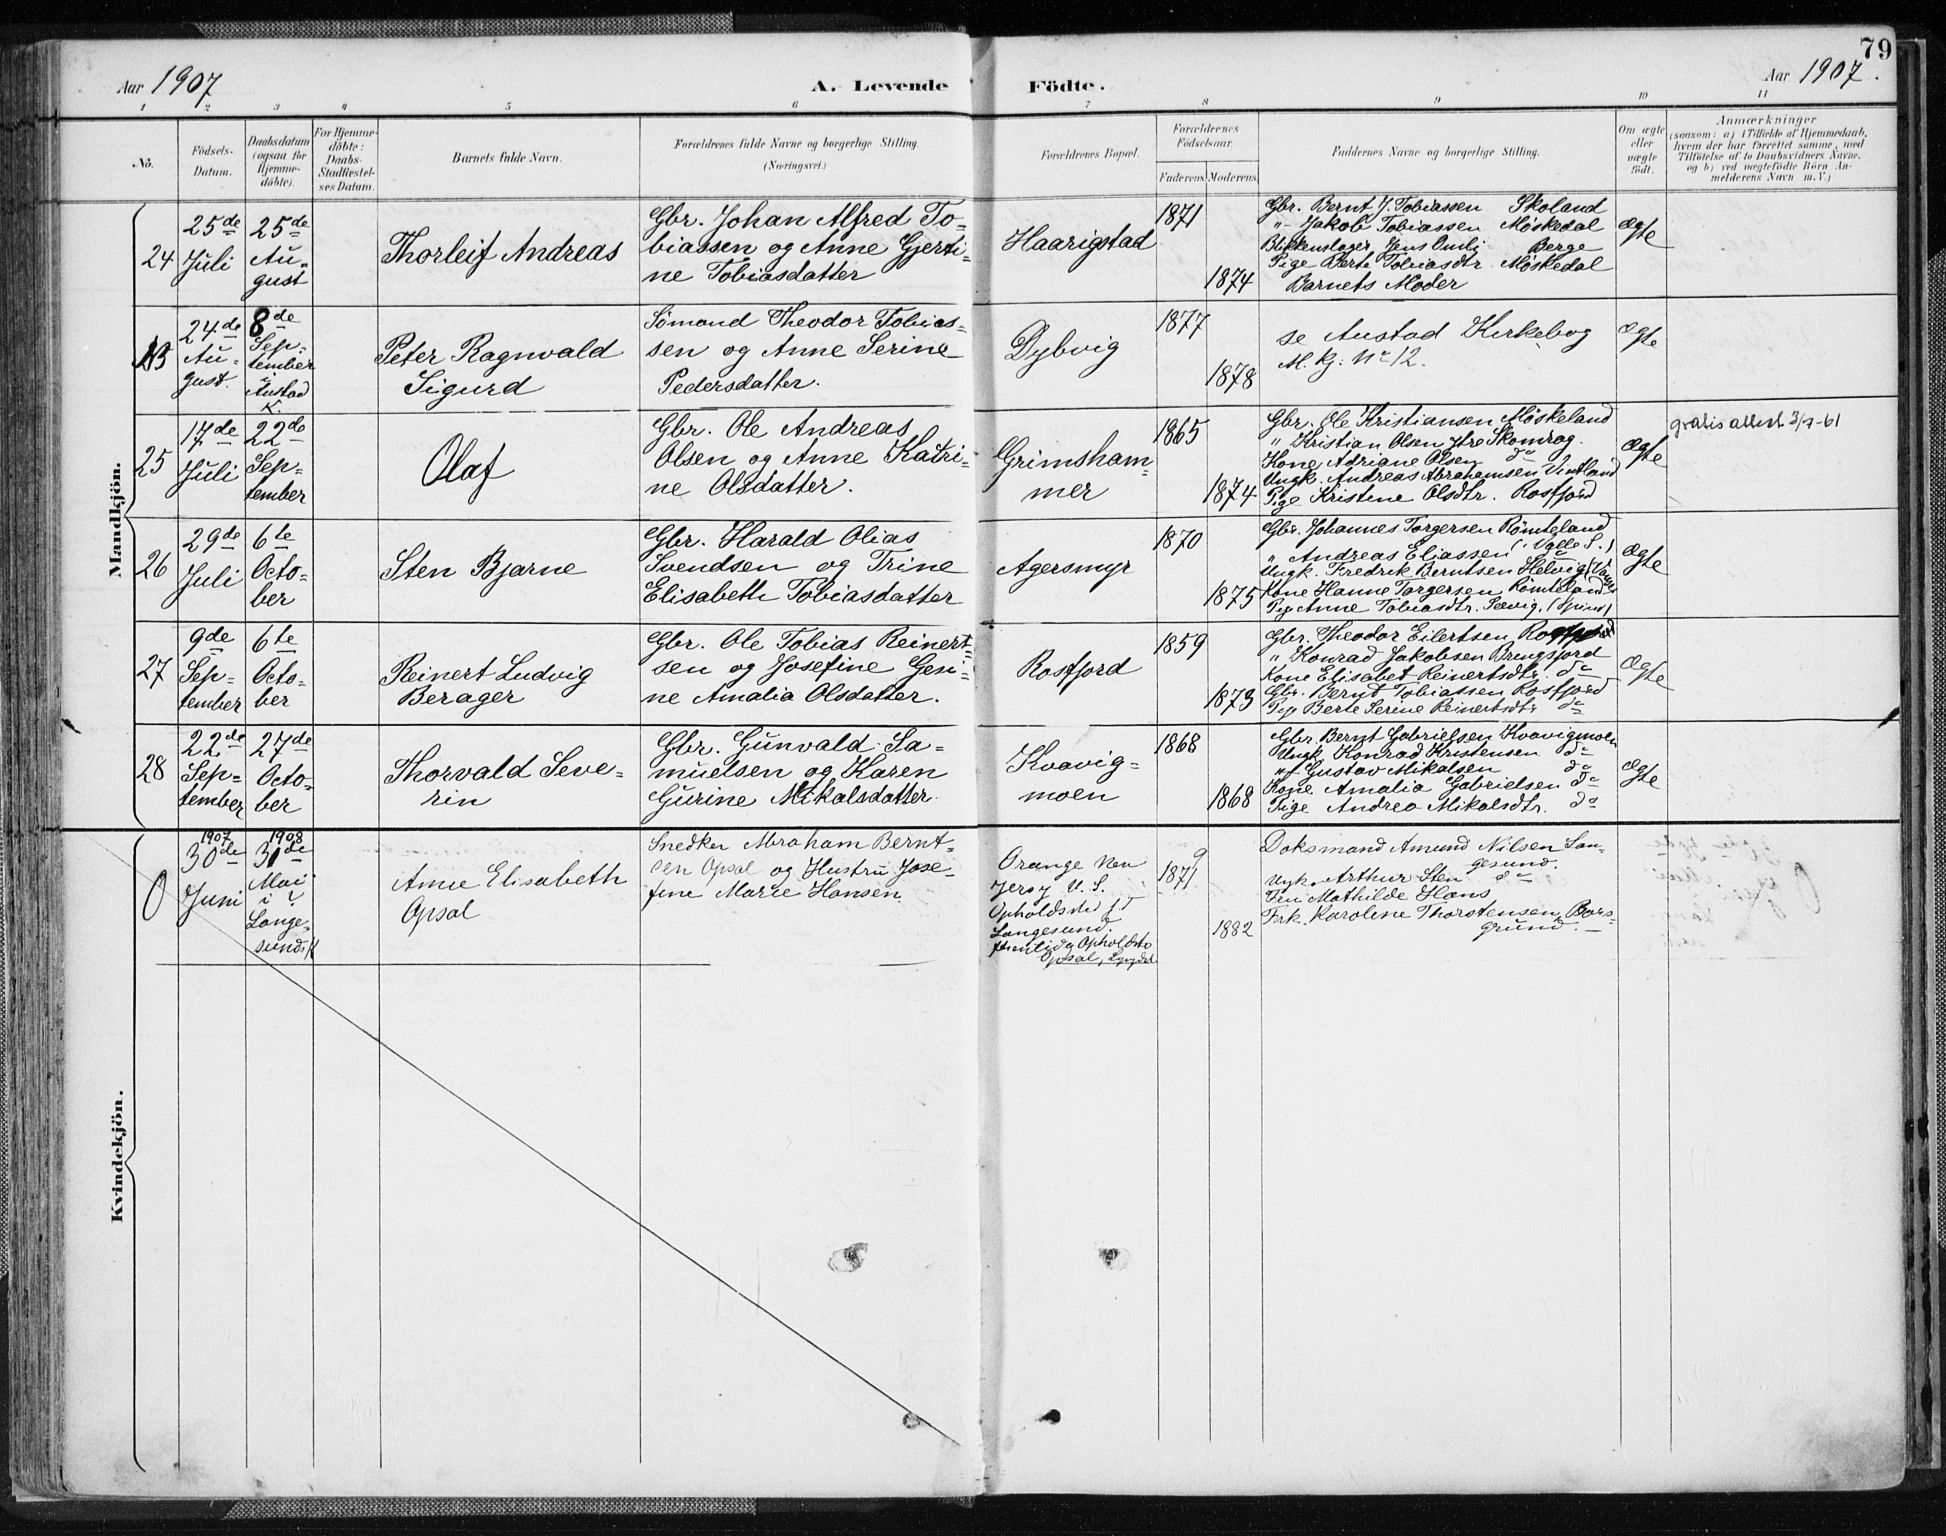 79
Aar 1907
A. Levende Födte.
Aar 1907.
1 2 3 4 5 6 7 8 9 10 11
No.
Födsels-
Datum.
Daabsdatum
(ogsaa for
Hjemme-
döbte).
For Hjemme-
döbte:
Daabs-
Stadfæstel-
ses Datum.
Barnets fulde Navn.
Forældrenes fulde Navne og borgerlige Stilling.
(Næringsvei.)
Forældrenes Bopæl.
Forældrenes
Födselsaar.
Faderens. Moderens.
Faddernes Navne og borgerlige Stilling.
Om ægte
eller
uægte
födt.
Anmærkninger
(saasom: a) i Tilfælde af Hjemmedaab,
hvem der har forrettet samme, med
Tilföielse af to Daabsvidners Navne,
og b) ved uægtefödte Börn An-
melderens Navn m. V.)
Mandkjön.
24
25de
Juli
25de
Au-
gust
Thorleif Andreas
Gbr. Johan Alfred To-
biassen og Anne Gjerti-
ne Tobiasdatter
Haarigstad
1871
1874
Gbr. Bernt J. Tobiassen Skoland
" Jakob Tobiassen Møskedal
Blikkenslager Jens Omli Berge
Pige Berte Tobiasdtr. Møskedal
Barnets Moder
Ægte
24de
Au-
gust.
8de
Sep-
tember
i
Austad
K.
Peter Ragnvald
Sigurd
Sömand Theodor Tobias-
sen og Anne Serine
Pedersdatter.
Dybvig
1877
1878
se Austad Kirkebog
M. kj: No 12.
Ægte
25
17de
Juli
22de
Sep-
tember
Olaf
Gbr. Ole Andreas
Olsen og Anne Katri-
ne Olsdatter.
Grimsham-
mer
1865
1874
Gbr. Ole Kristiansen Møskeland
" Kristian Olsen Ytre Skomrag.
Kone Adriane Olsen do
Ungk. Andreas Abrahamsen Vintland
Pige Kristine Olsdtr. Rosfjord
Ægte
gratis attest 3/7-61
26
29de
Juli
6te
Octo-
ber
Sten Bjarne
Gbr. Harald Olias
Svendsen og Trine
Elisabeth Tobiasdatter
Agersmyr
1870
1875
Gbr. Johannes Torgersen Römteland
" Andreas Eliassen (Valle S.)
Ungk. Fredrik Berntsen Helvig
Kone Hanne Torgersen Römteland
Pige Anne Tobiasdtr. Sævig, (Spind)
Ægte
27
9de
Sep-
tember
6te
Octo-
ber
Reinert Ludvig
Berager
Gbr. Ole Tobias Reinert-
sen og Josefine Gesi-
ne Amalia Olsdatter.
Rosfjord
1859
1873
Gbr. Theodor Eilertsen Rosfjord
" Konrad Jakobsen Bringsjord
Kone Elisabet Reinertsdtr. do
Gbr. Bernt Tobiassen Rosfjord
Pige Berte Serine Reinertsdtr do
Ægte
28
22de
Sep-
tember
27de
Octo-
ber
Thorvald Seve-
rin
Gbr. Gunvald Sa-
muelsen og Karen
Gurine Mikalsdatter.
Kvavig-
moen
1868
1868
Gbr. Bernt Gabrielsen Kvavigmoen
Ungk. Konrad Kristensen do
Gustav Mikalsen do
Kone Amalia Gabrielsen do
Pige Andrea Mikalsdtr. do
Ægte
Kvindekjön.
0
1907
30de
Juni
1908
31de
Mai
i
Lange-
sunds K
Anne Elisabeth
Opsal
Snedker Abraham Bernt-
sen Opsal og Hustru Jose-
fine Marie Hansen
Orange New
Jersy U.S.
Opholdssted f.T.
Langesund.
fremtidig Opholdsst.
Opsal, Lyngdal
1871
1882
Doksmand Amund Nilsen Lan-
gesund.
Ungk. Arthur Sten do
Fru Mathilde Hans
Frk. Karoline Thorstensen, Bors-
grund.